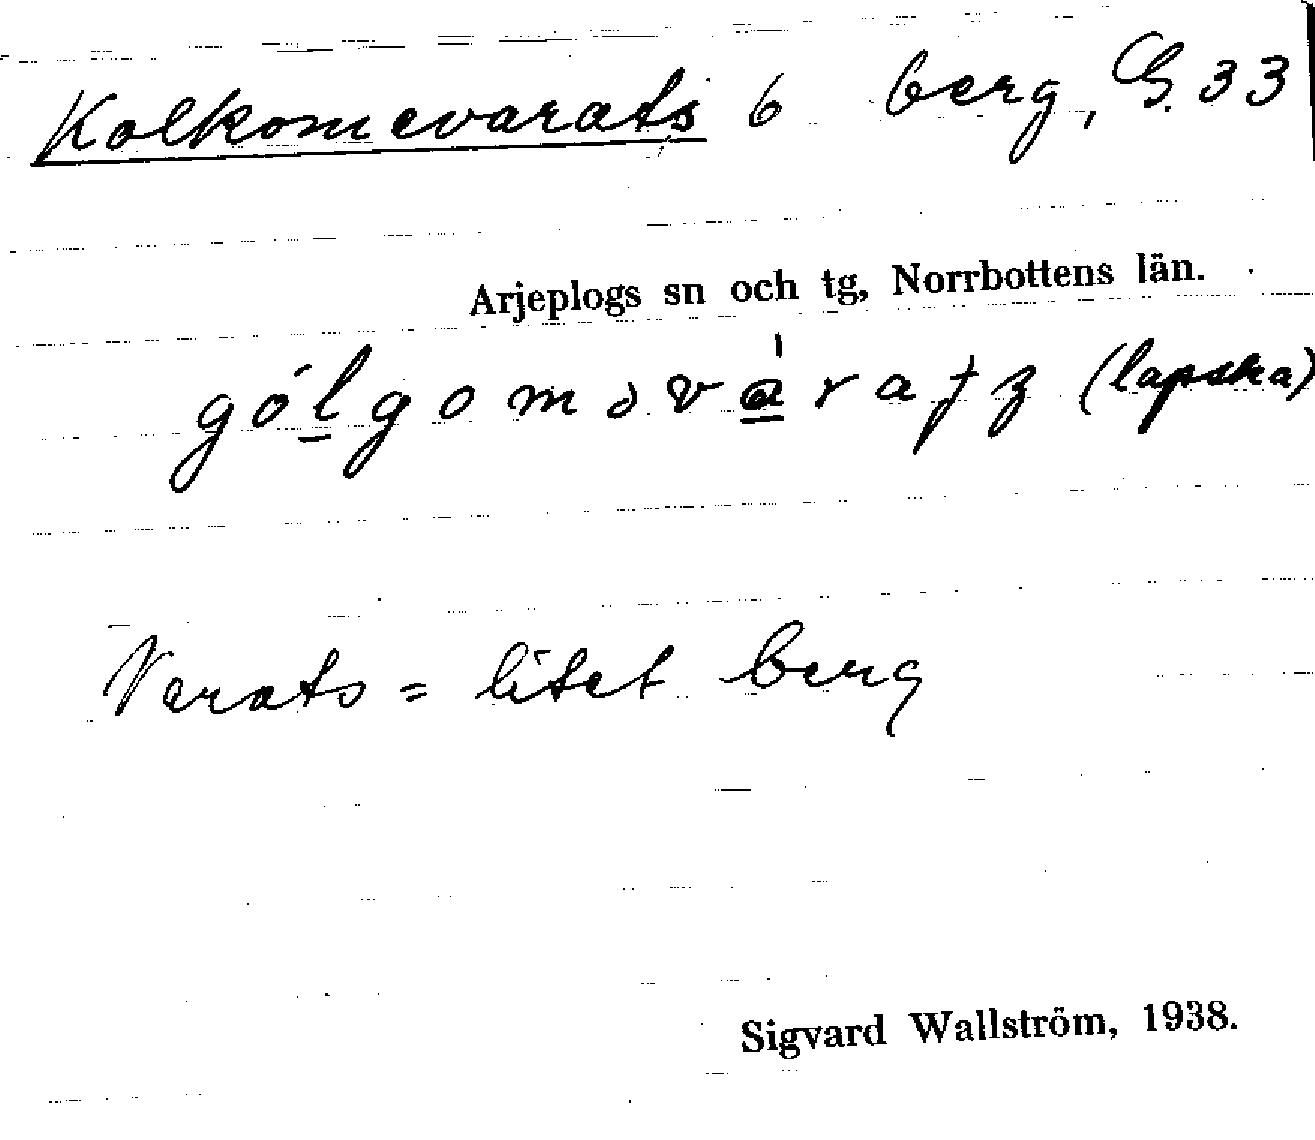 Kolkomevarats 6 berg, G. 33
Arjeplogs sn och tg, Norrbottens län.
gól̲goməvà̲raƫz (lapska)
Varats = litet berg
Sigvard Wallström, 1938.